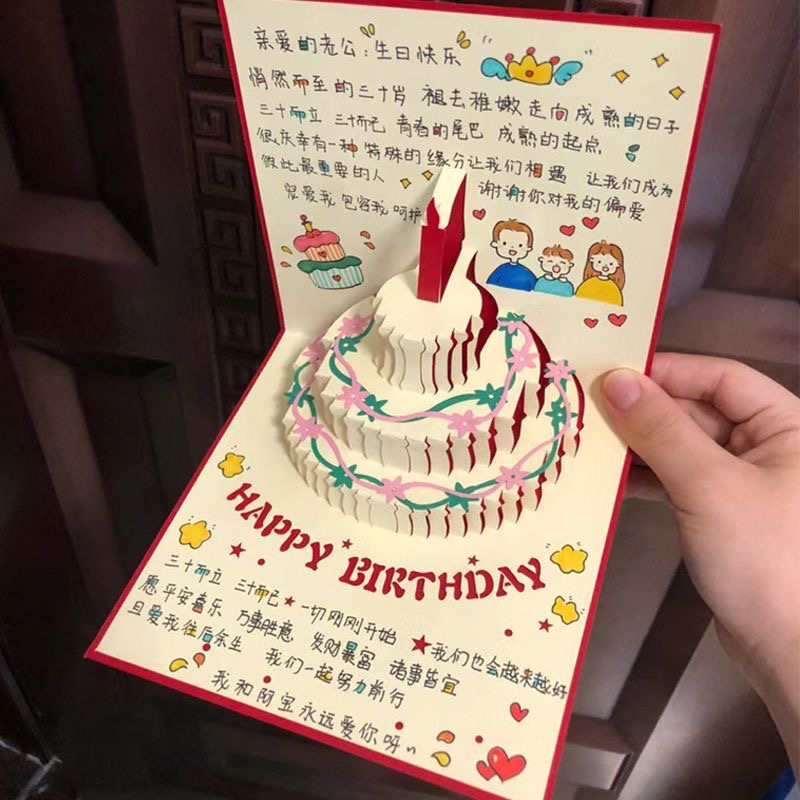 亲爱的老公：生日快乐
悄然而至的三十岁 褪去稚嫩走向成熟的日子
三十而立 三十而已 青春的尾巴 成熟的起点
很庆幸有一种特殊的缘分让我们相遇 让我们成为
彼此最重要的人
宠爱我 包容我 呵护 谢谢你对我的偏爱
HAPPY BIRTHDAY
三十而立 三十而已 一切刚刚开始 我们也会越来越好
愿平安喜乐 万事胜意 发财暴富 诸事皆宜
且爱我往后余生 我们一起努力前行
我和阿宝永远爱你呀~